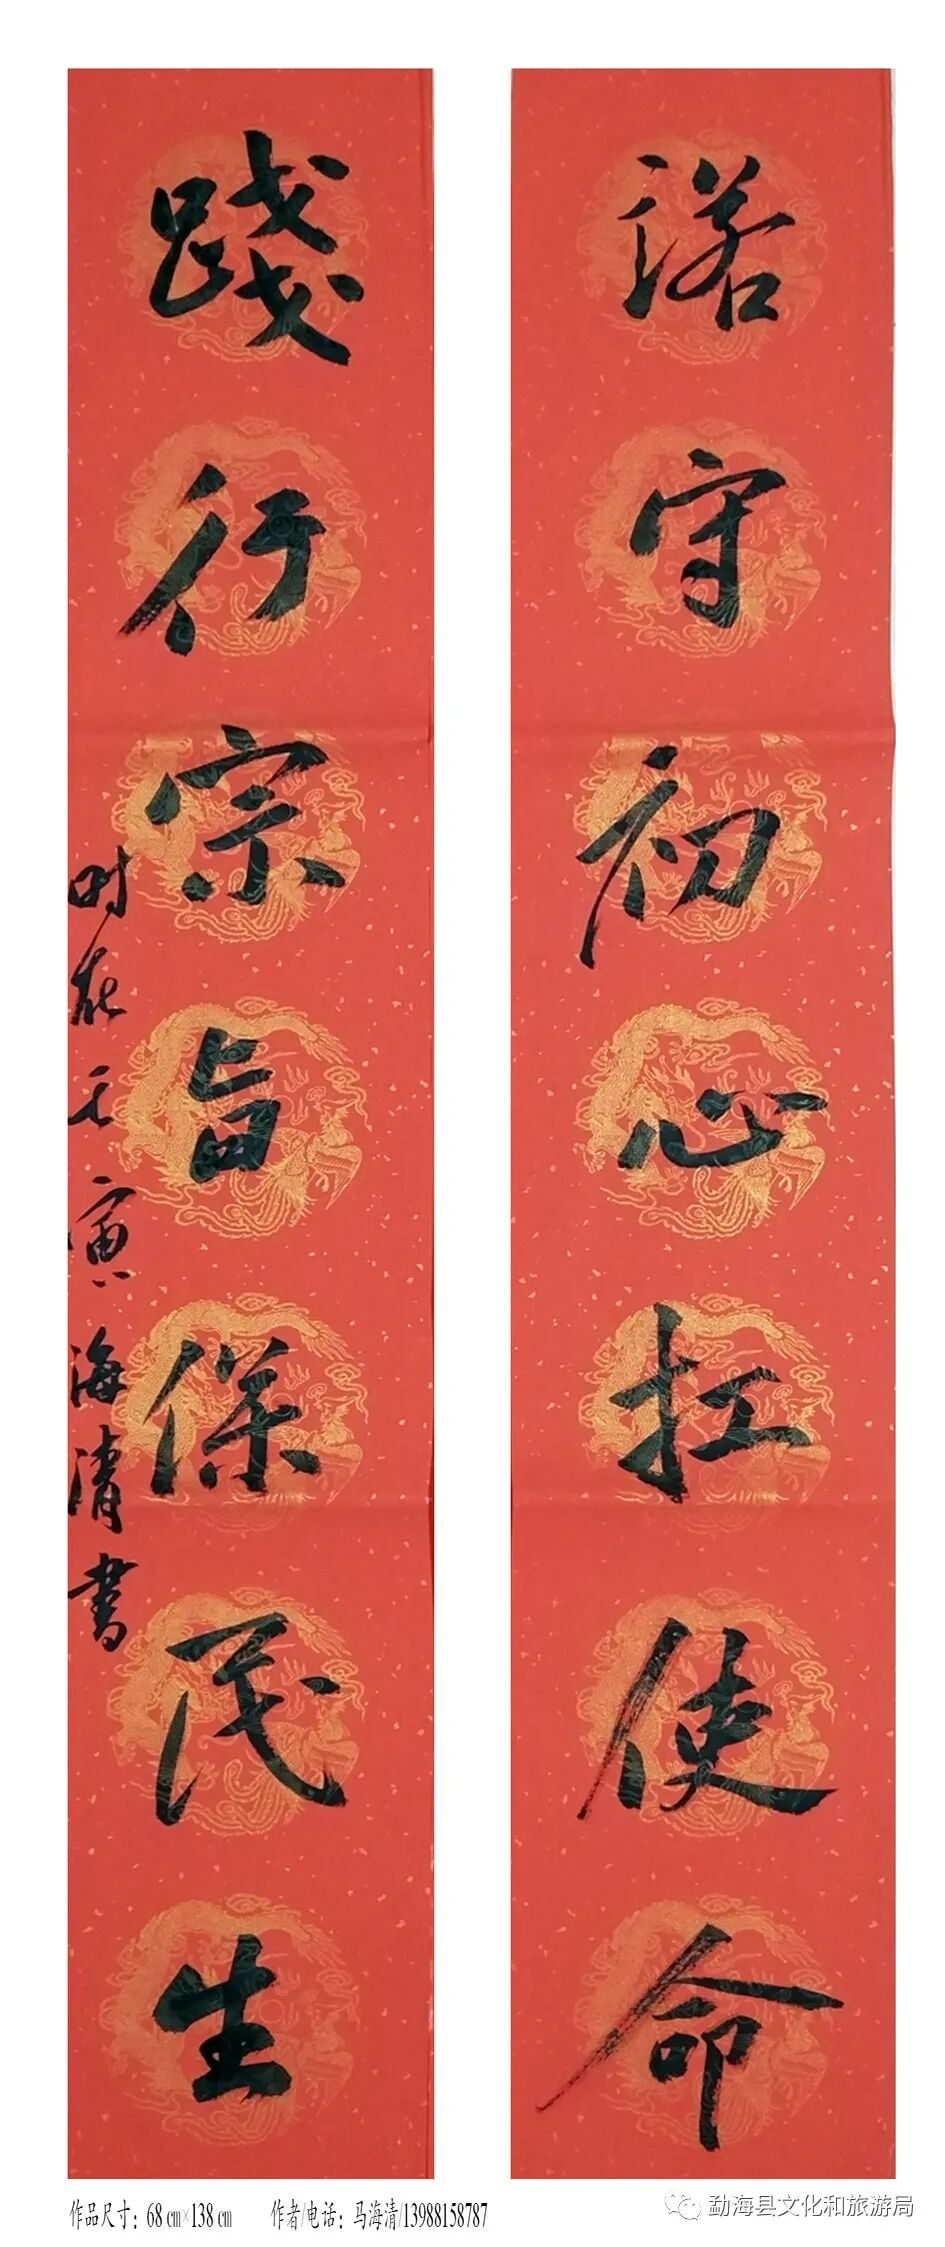 诺守初心扛使命
踐行宗旨保民生
时在壬寅海清书
作品尺寸：68㎝×138㎝
作者/电话：马海清/13988158787
勐海县文化和旅游局